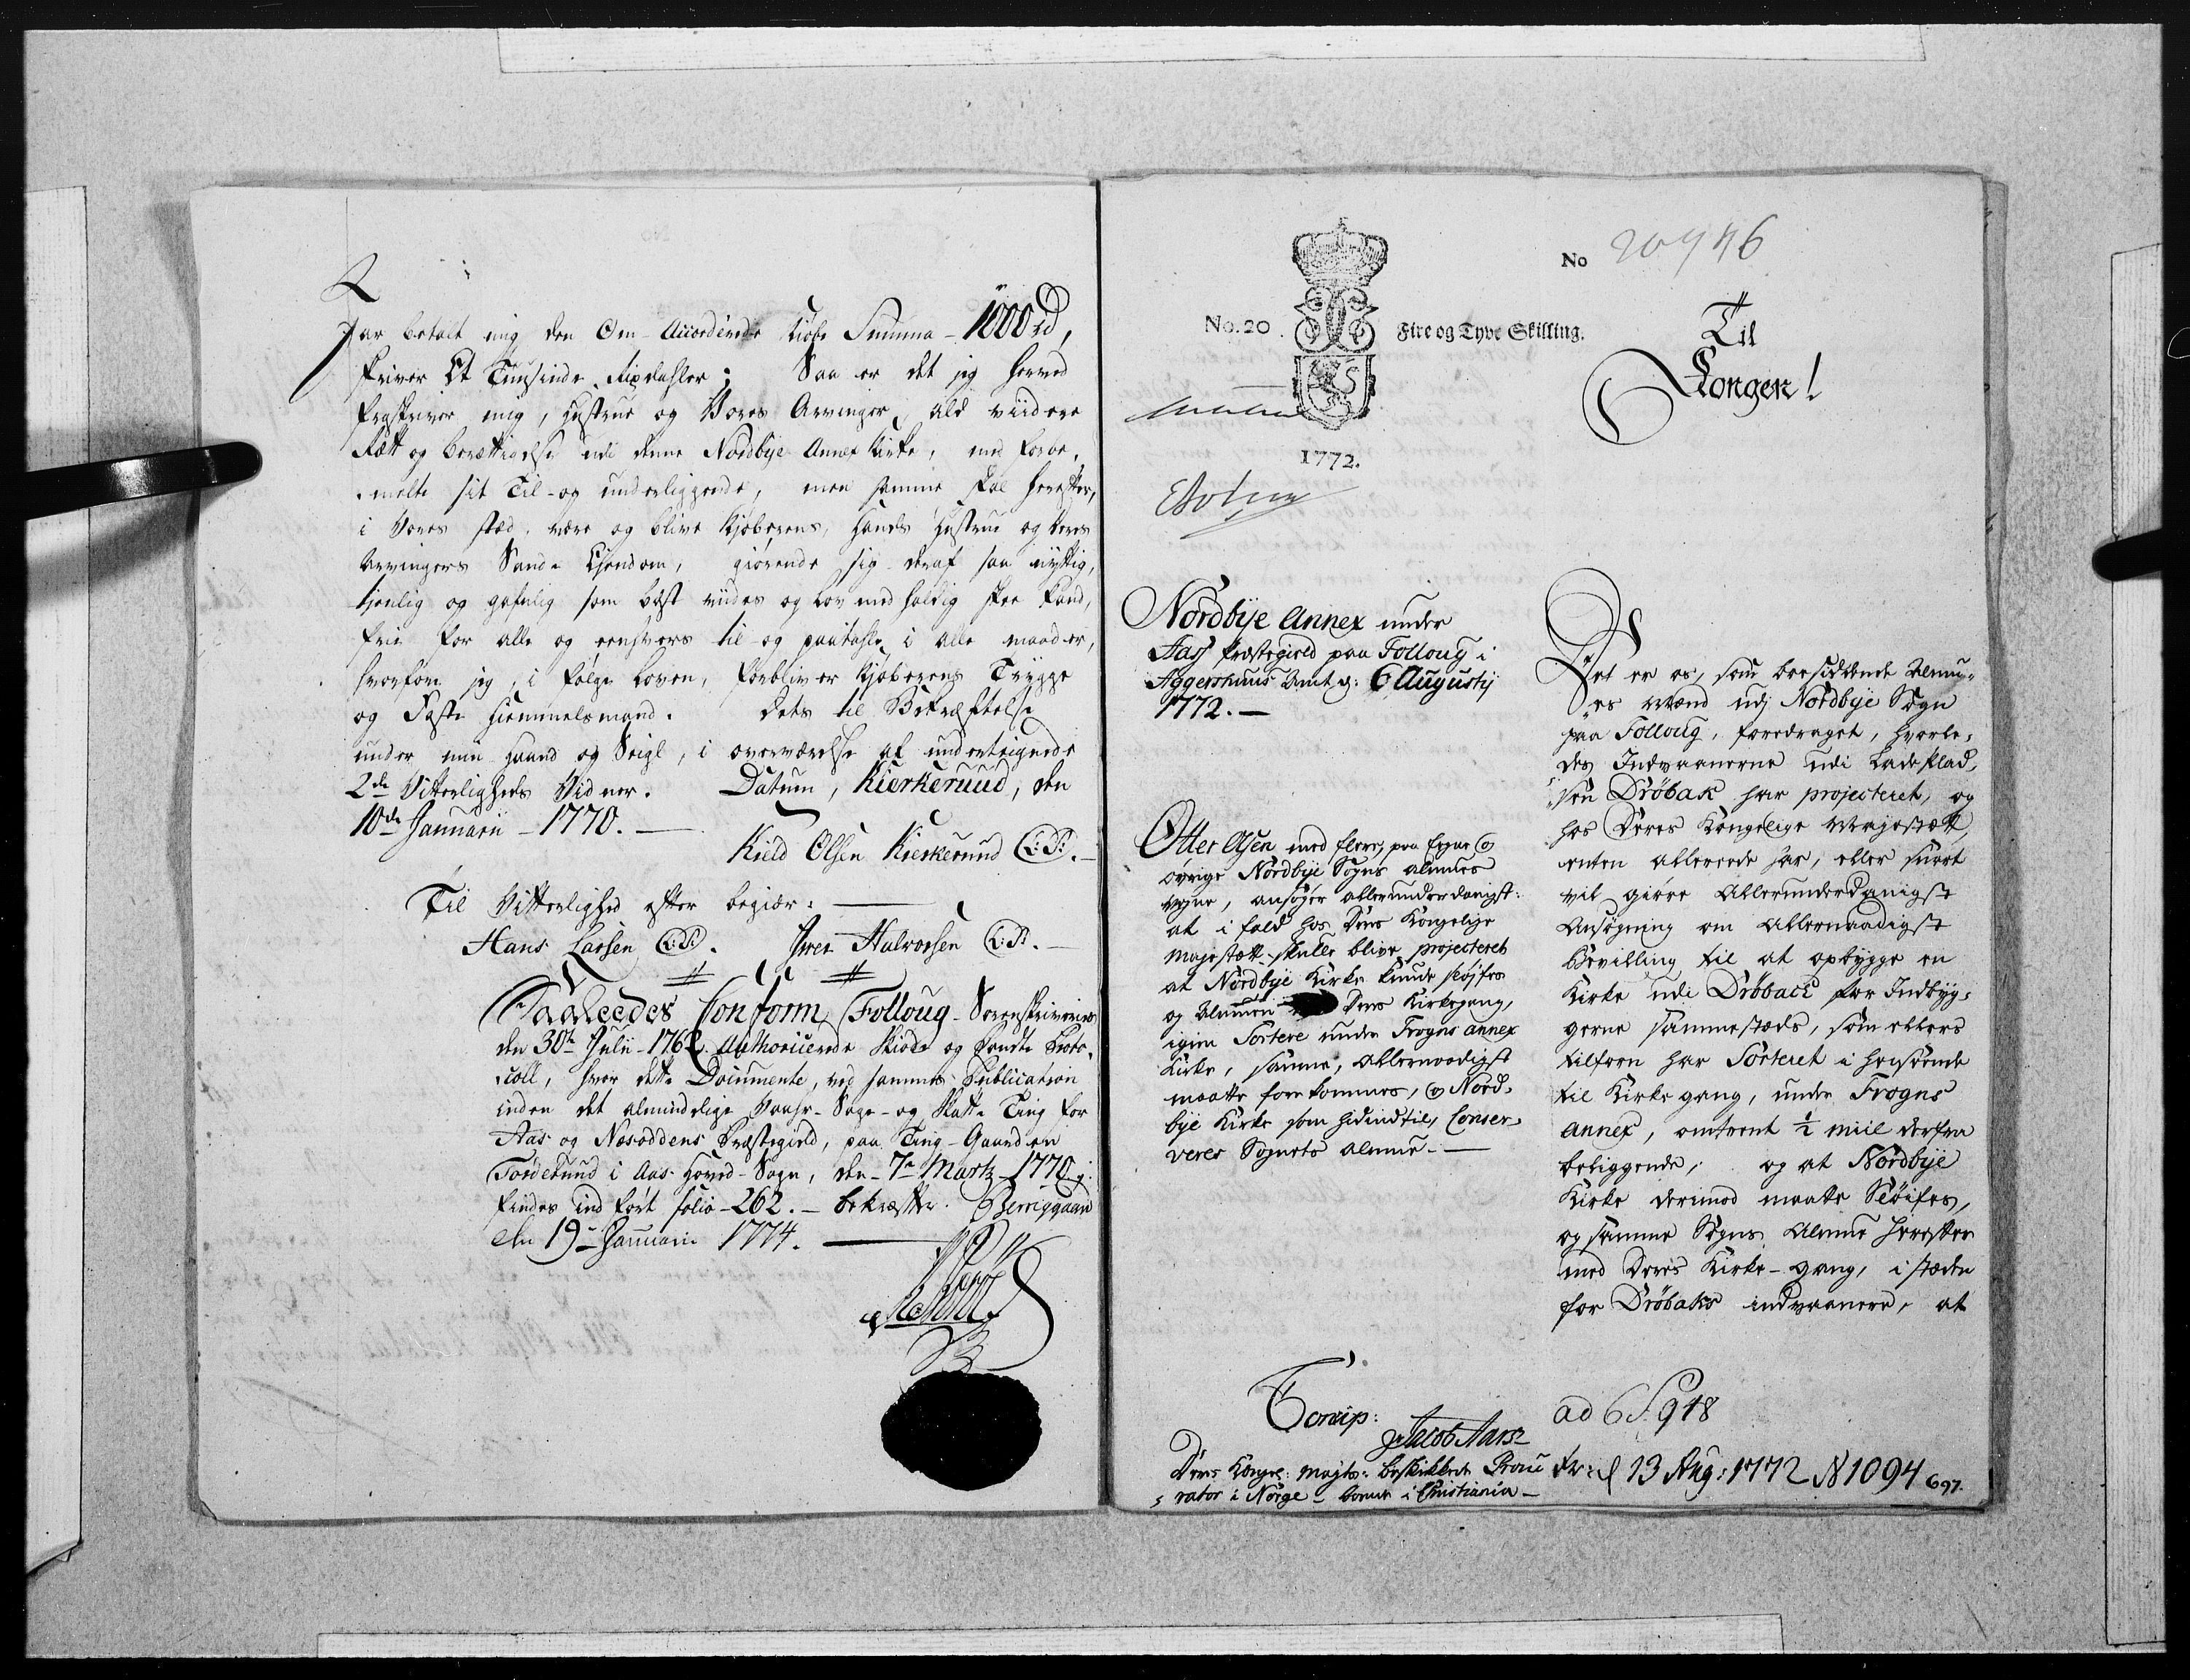 har betalt mig den Om-Accorderede Kiøbe Summa - 1000 rd,
skriver Et Tuusinde Rixdahler; Saa er det jeg herved
fraskriver mig, Hustrue og Vores Arvinger, ald viidere
Rætt og berættigelse udi denne Nordbye Annex Kirke, med forbe-
melte sit Til- og underliggende, men samme skal herefter,
i Vores stæd, være og blive Kjøberens, Hands Hustrue og deres
Arvingers Sande Ejendom, giørende sig deraf saa nyttig,
tjenlig og gafnlig som best viides og lov medholdig skee kand,
frie for alle og eenhvers til og paatahle i alle maader,
hvorfore jeg, i følge Loven, forbliver Kjøberens Trygge
og Faste Hiemmelsmand. Dets til Bekræftelse
under min Haand og Seigl, i overværelse af undertegnede
2de Vitterligheds Vidner. Datum, Kierkeruud, den
10de Januarii - 1770.
Kield Olsen Kierkeruud (L:S:)
Til Vitterlighed efter begiær:
Hans Larsen (L:S:). Iver Halvorsen (L:S:).
Saaleedes Conform Folloug-Sorenskriveries
den 30te Julii - 1762 Authoricerede Skiøde og Pandte Proto-
coll, hvor dette Documente, ved sammes Publication
inden det almindelige Vaahr-Sage- og Skatte Ting for
Aas og Næsoddens Præstegield, paa Ting-Gaarden
i Aas Hoved-Sogn, den 7de Martz 1770,
findes indført folio - 262. - bekræfter. Berriggaard
den 19de Januarii 1774.
No 20446
No. 20. Fire og Tyve Skilling.
1772.
Til
Kongen!
Nordbye Annex under
Aas Præstegield paa Folloug i
Aggershuus Amt d: 6 Augustij
1772. -
Otter Olsen med fleere, paa Egne og
øvrige Nordbye Sogns almues
vegne, ansøger allerunderdanigst:
at i fald hos Deres Kongelige
Majestæt skulle blive projecteret
at Nordbye Kirke kunde sløjfes
og Almuen Deres Kirkegang,
igien Sortere under Frogns annex
Kirke, samme, allernaadigst
maatte forekommes, og Nord-
bye Kirke som hidindtil, Conser-
veres Sognets almue. -
Det er os, som boesiddende Almu-
es Mænd udj Nordbye Sogn
paa Folloug, foredraget, hvorle-
des Indvaanerne udi Ladeplad-
sen Drøbak har projecteret, og
hos Deres Kongelige Majestætt,
enten allereede har, eller snart
vil giøre Allerunderdanigste
Ansøgning om Allernaadigste
Bevilling til at opbygge en
Kirke udi Drøback for Indbyg-
gerne sammestæds, som ellers
tilforn har Sorteret i henseende
til Kirkegang, under Frogns
annex, omtrent 1/2 miil derfra
beliggende, og at Nordbye
Kirke derimod maatte Sløifes,
og samme Sogns Almue herefter
med Deres Kirke-gang, i stæden
for Drøbaks indvaanere, at
Concip:
Jacob Aars
Deres Kongel: Mayts: beskikkede Procu-
rator i Norge - boende i Christiania -
ad 6 S: 918
d 13 Aug: 1772 N 1094 697.